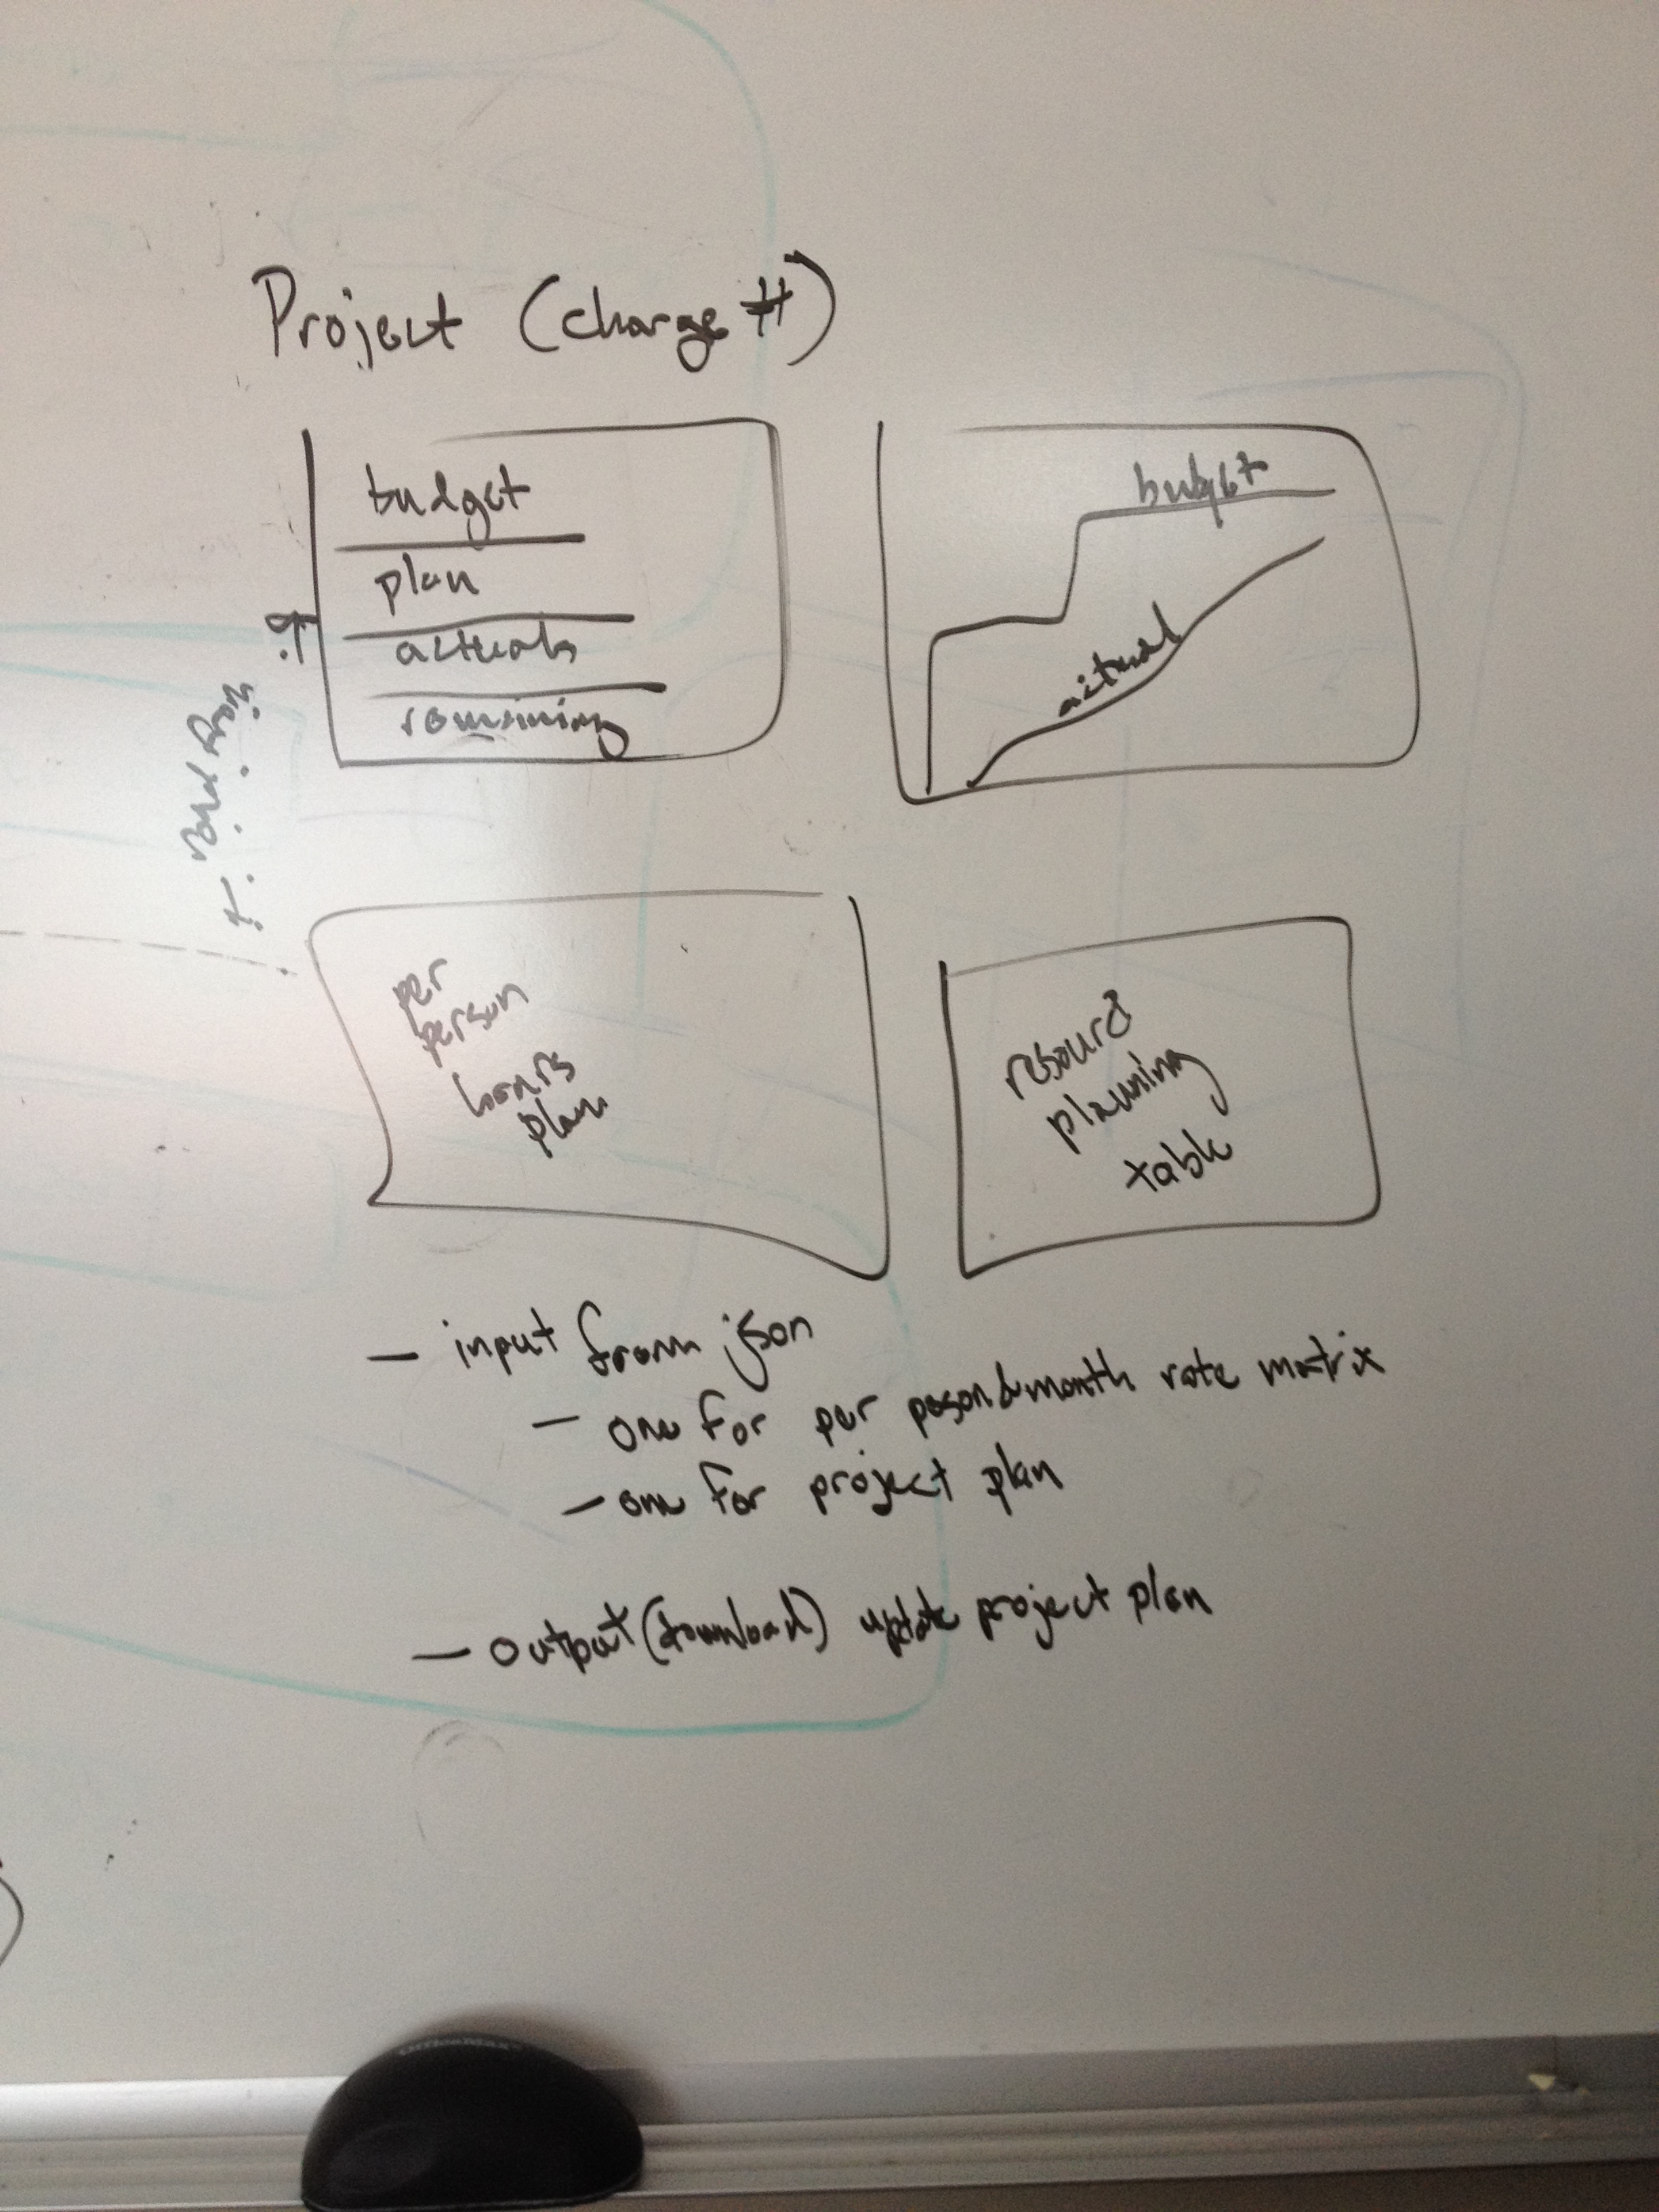 Project (charge #)
budget
plan
actuals
remaining
budget
actual
per
person
hours
plan
resource
planning
table
— input from json
— one for per person & month rate matrix
— one for project plan
— output (download) update project plan
OfficeMax